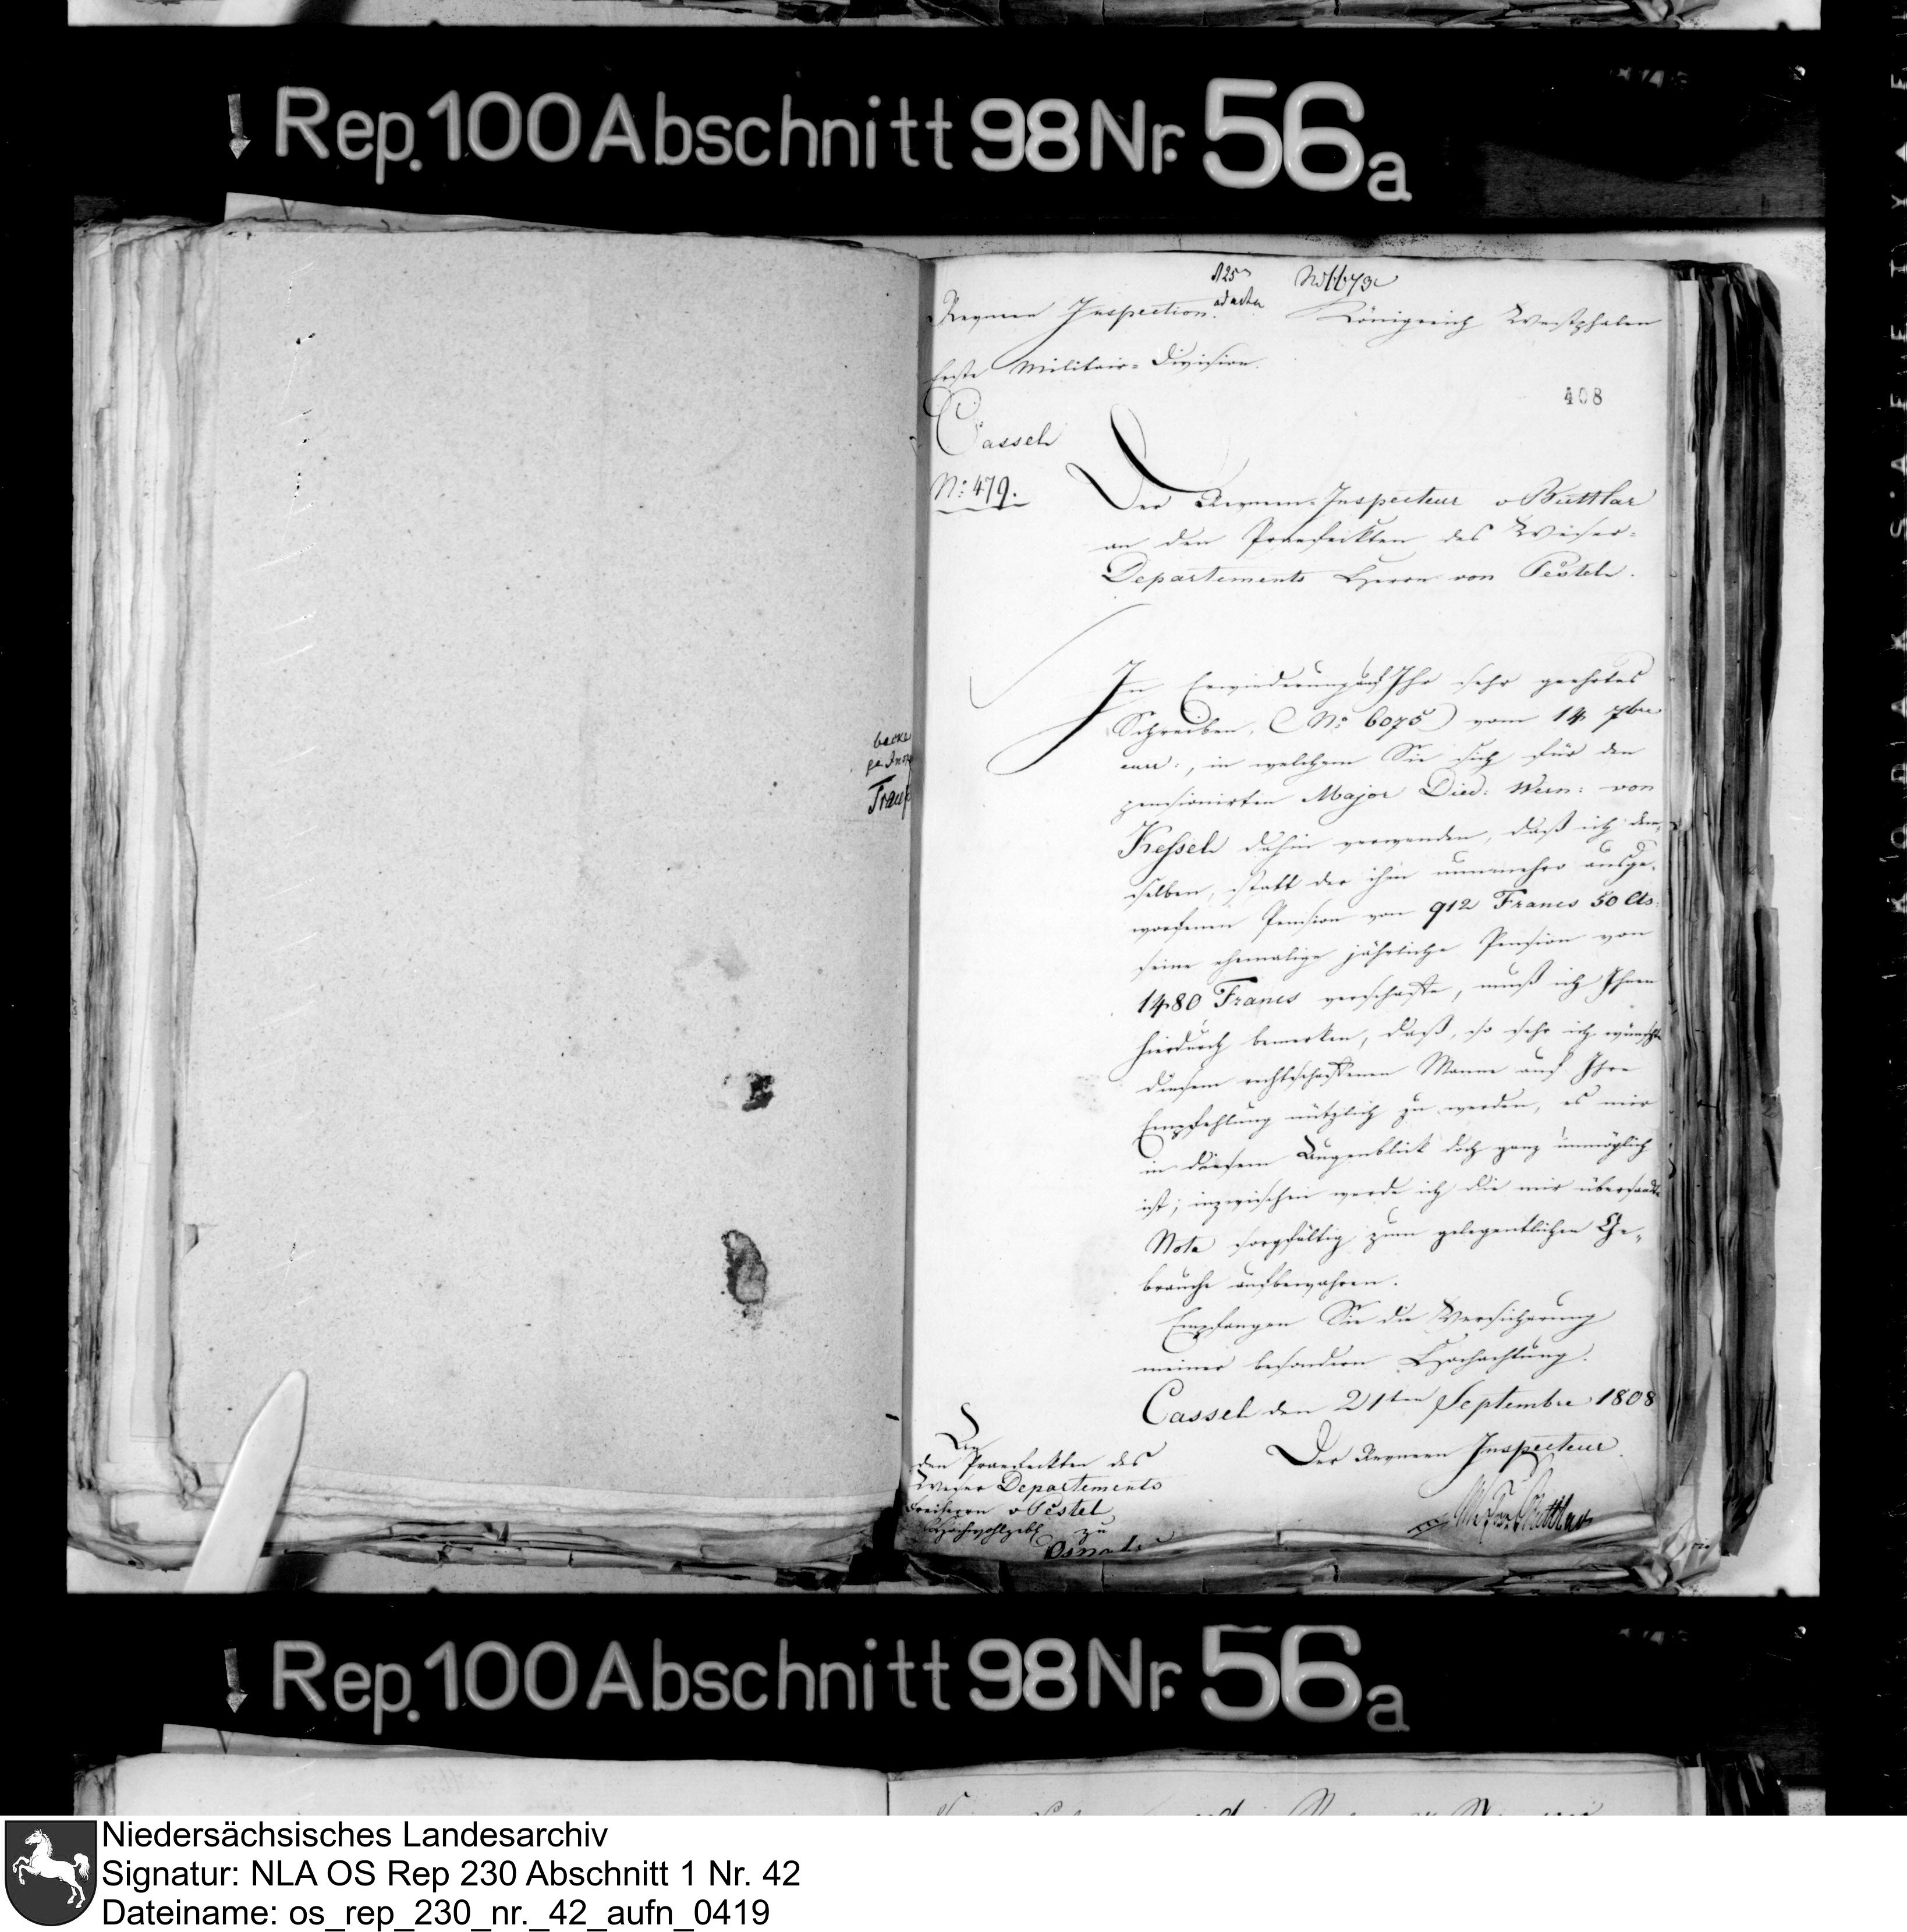 Rep. 100 Abschnitt 98 Nr. 56a
ad acta
Revuen Inspection. Königreich Westphalen
Erste Militair-Division.
408
Cassel
No: 479.
Der Revuen-Inspecteur v Buttlar
an den Praefeckten des Weser-
Departements Herrn von Pestel.
In Erwiederung auf Ihr sehr geehrtes
Schreiben, (No 6075) vom 14 7bre
curr:, in welchem Sie sich für den
pensionirten Major Died: Wern: von
Kessel dahin verwenden, daß ich dem-
selben, statt der ihm nunmehro ausge-
worfenen Pension von 912 Francs 50 Cts:
seine ehemalige jährliche Pension von
1480 Francs verschaffe, muß ich Ihnen
hierdurch bemerken, daß, so sehr ich wünschte
diesem rechtschaffenen Manne auf Ihre
Empfehlung nützlich zu werden, es mir
in diesem Augenblick doch ganz unmöglich
ist; inzwischen werde ich die mir übersandte
Nota sorgfältig zum gelegentlichen Ge-
brauche aufbewahren.
Empfangen Sie die Versicherung
meiner besondern Hochachtung.
Cassel den 21ten Septembre 1808
Der Revuen Inspecteur
An
den Praefeckten des
Weser Departements
Freiherrn v Pestel
Hochwohlgeb zu
Rep. 100 Abschnitt 98 Nr. 56a
Niedersächsisches Landesarchiv
Signatur: NLA OS Rep 230 Abschnitt 1 Nr. 42
Dateiname: os_rep_230_nr._42_aufn_0419